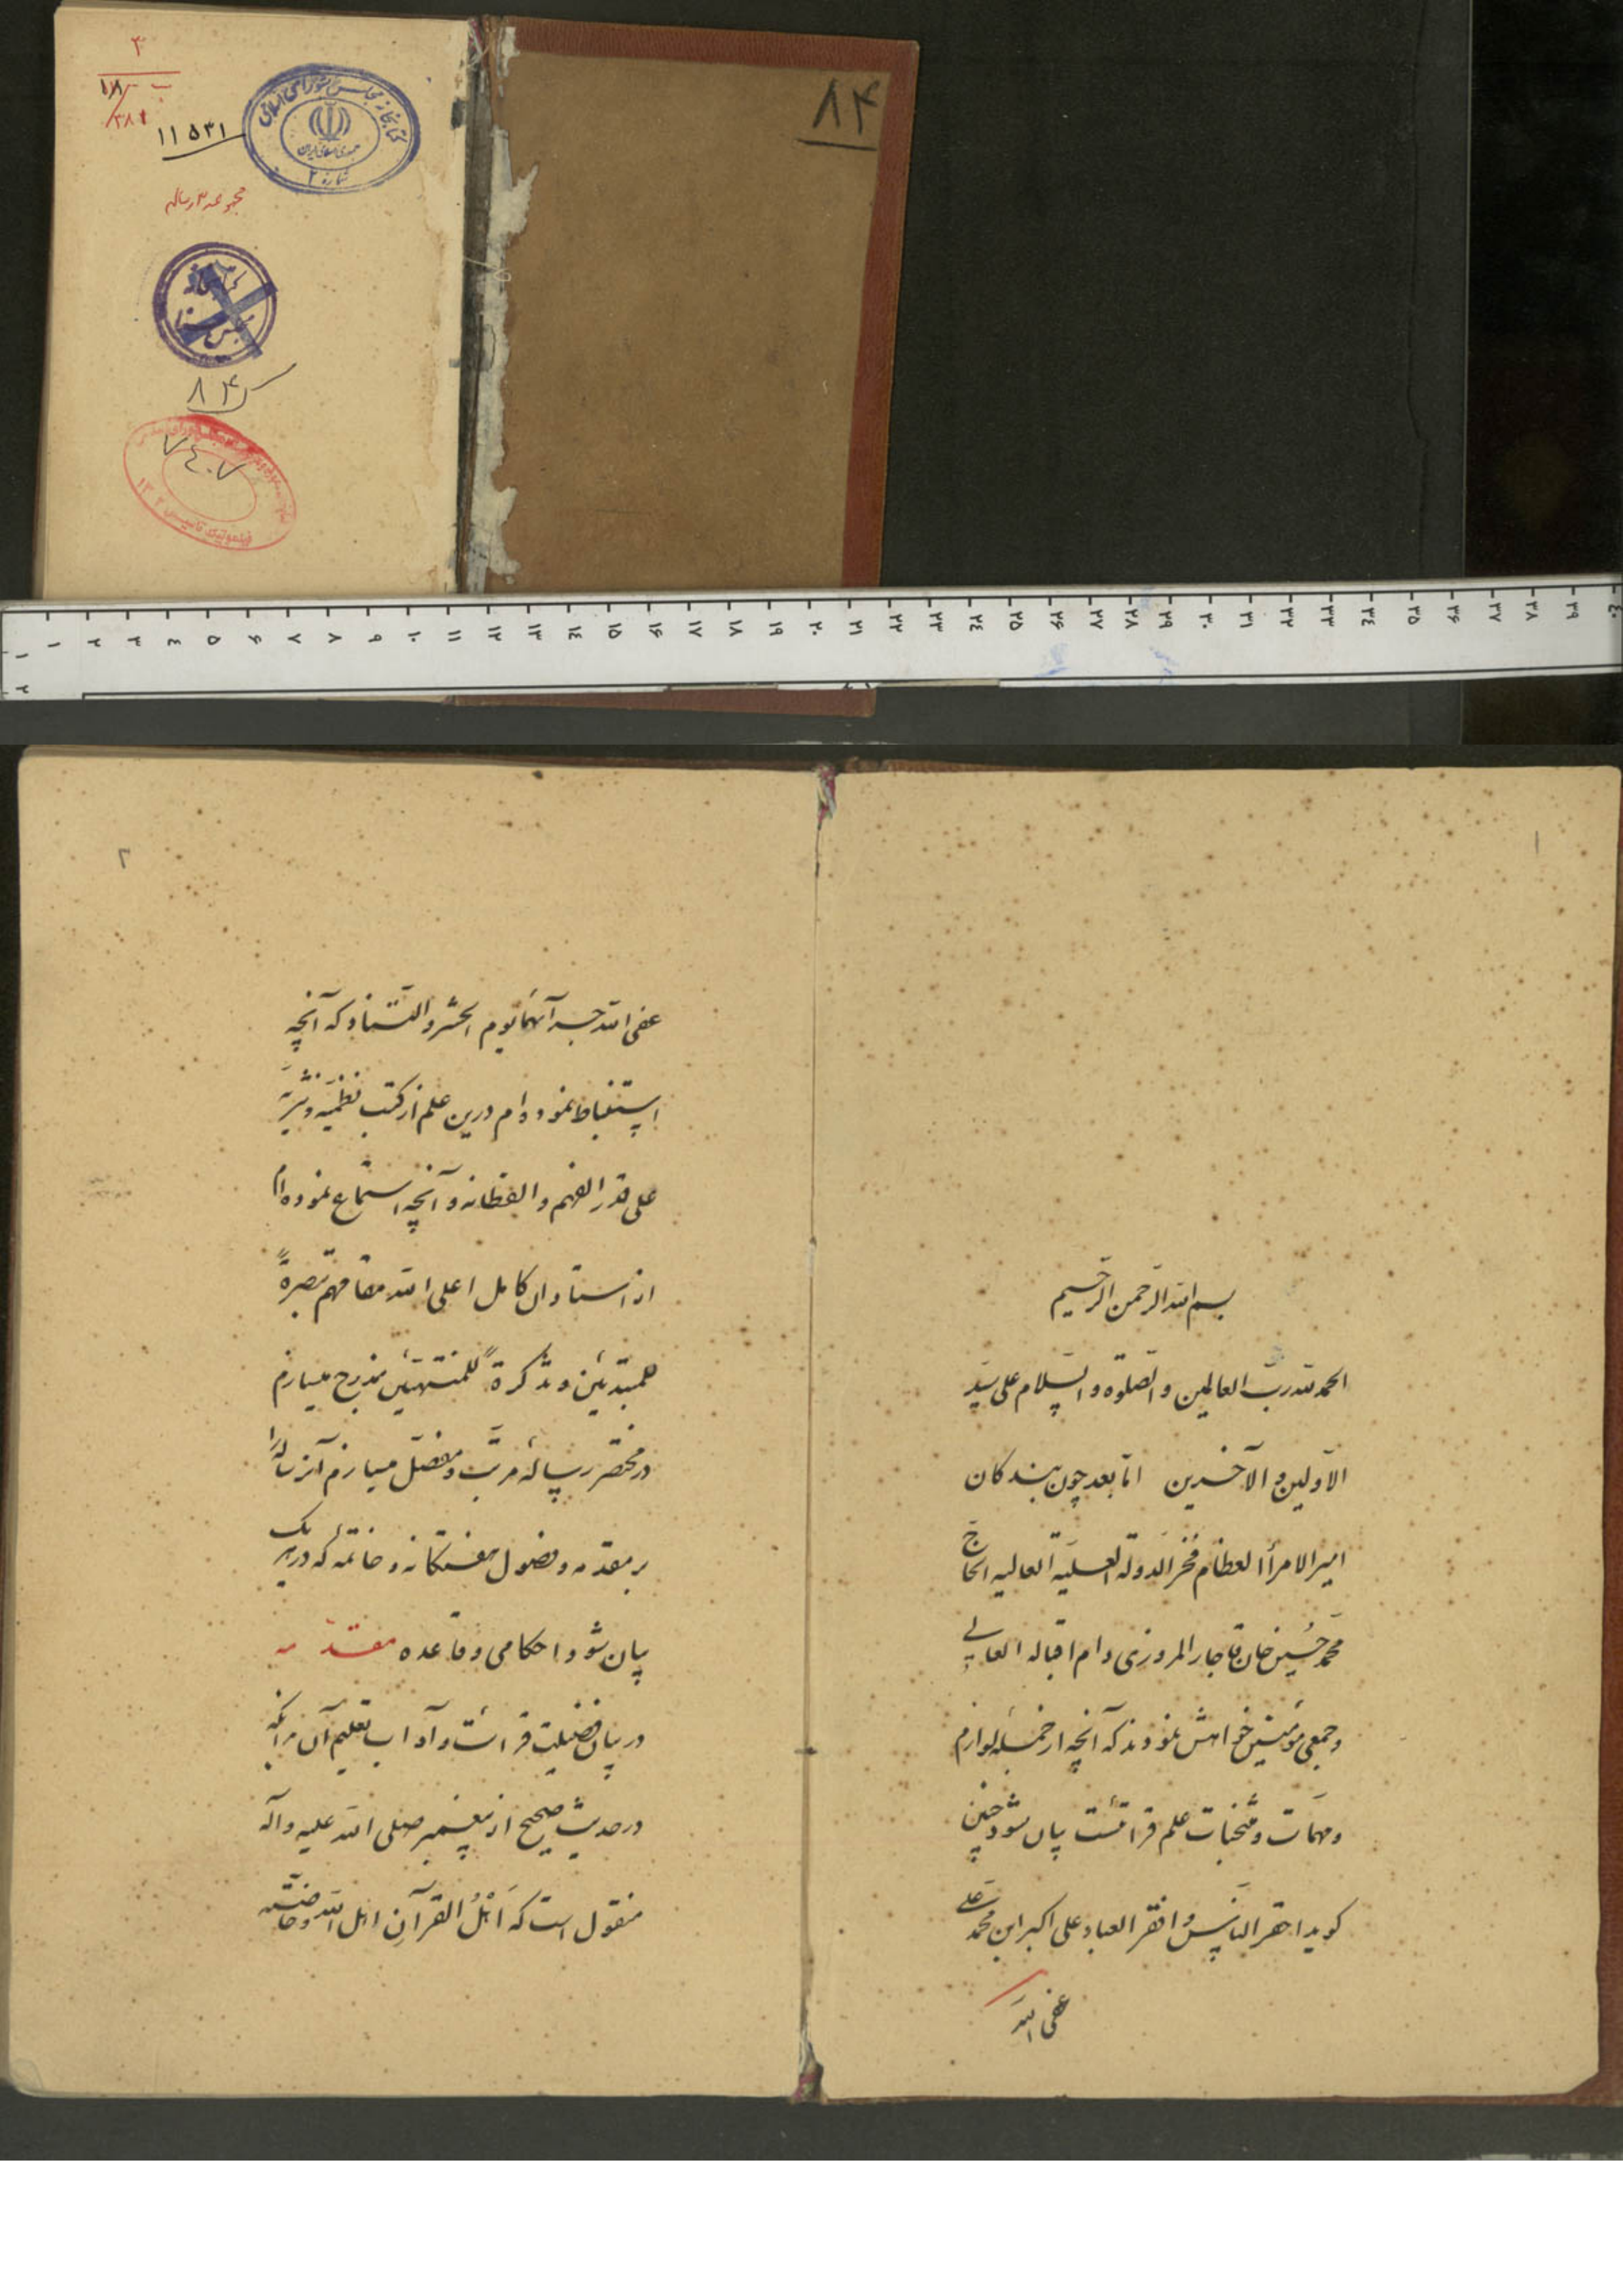 ۸۴
۳
ب
۱۸
۲۸۱
۱۱۵۳۱
کتابخانه مجلس شورای اسلامی
جمهوری اسلامی ایران
شماره ۲
مجموعه ۳ رساله
۸۴
۷٤۰۷
۱ ۲ ۳ ٤ ۵ ۶ ۷ ۸ ۹ ۱۰ ۱۱ ۱۲ ۱۳ ۱٤ ۱۵ ۱۶ ۱۷ ۱۸ ۱۹ ۲۰ ۲۱ ۲۲ ۲۳ ۲٤ ۲۵ ۲۶ ۲۷ ۲۸ ۲۹ ۳۰ ۳۱ ۳۲ ۳۳ ۳٤ ۳۵ ۳۶ ۳۷ ۳۸ ۳۹ ٤۰
۱
۲
۱
بسم الله الرّحمن الرّحیم
الحمد لله ربّ العالمین و الصّلوه و السّلام علی سیّد
الاوّلین و الآخرین امّا بعد چون بندکان
امیر الامرأ العظام فخر الدوله العلیّة العالیه الحاجّ
محمّد حُسین خان قاجار المروزی دام اقباله العالی
و جمعی مؤمنین خواهش نمودند که آنچه از جمله لوازم
و مهمّات و منتخبات علم قرائت بیان شود چنین
کوید احقر النّاس و افقر العباد علی اکبر ابن محمّد علی
عفی الله
۲
عفی الله جرآئمهما یوم الحشر و التّناد که آنچه
استنباط نموده ام درین علم از کتب نظمیّه و نثریّه
علی قدر الفهم و الفطانه و آنچه استماع نموده ام
از استادان کامل اعلی الله مقامهم تبصرةً
للمبتدئین و تذکرةً للمنتهئین مندرج میسازم
در مختصر رسالهٔ مرتّب و مفصّل میسازم آنرساله را
بر مقدمه و فصول هفتکانه و خاتمه که در هر یک
بیان شود احکامی و قاعده مقدّمه
در بیان فضیلت قرائت و آداب تعلیم آن بدانکه
در حدیث صحیح از پیغمبر صلی الله علیه و آله
منقول است که اَهْلُ القرآنِ اهل الله و خاصّته